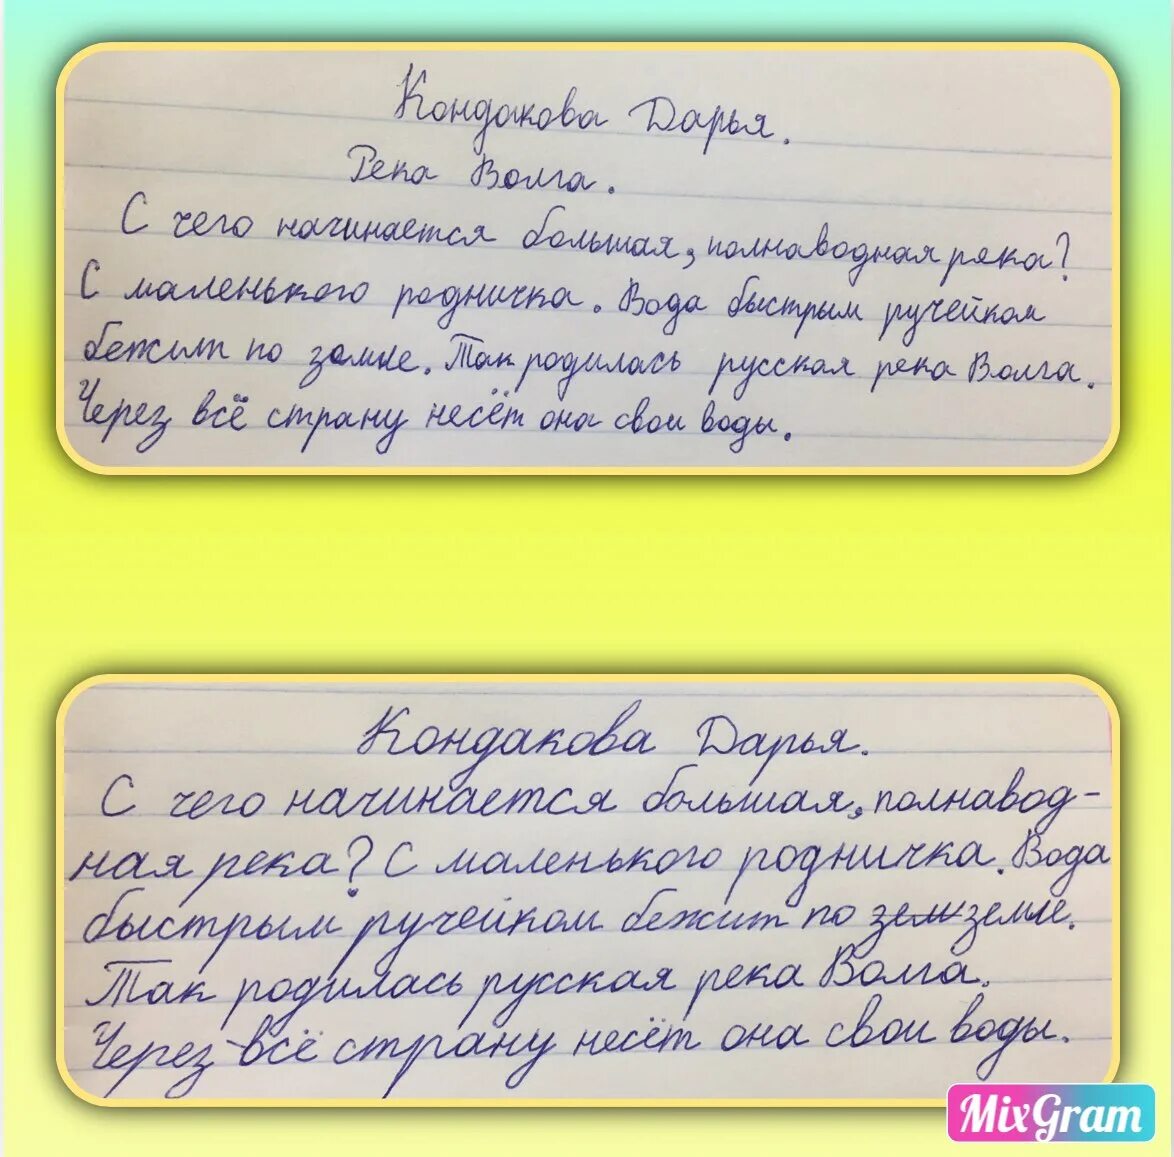 Кондакова Дарья.
Река Волга.
С чего начинается большая, полнаводная ряка?
С маленького родничка. Вода быстрым ручейком
бежит по замле. Так родилась русская река Волга.
Через всё страну несёт она свои воды.
Кондакова Дарья.
С чего начинается большая, полнавод-
ная река? С маленького родничка. Вода
быстрым ручейком бежит по зем земле.
Так родилась русская река Волга.
Через всё страну несёт она свои воды.
MixGram